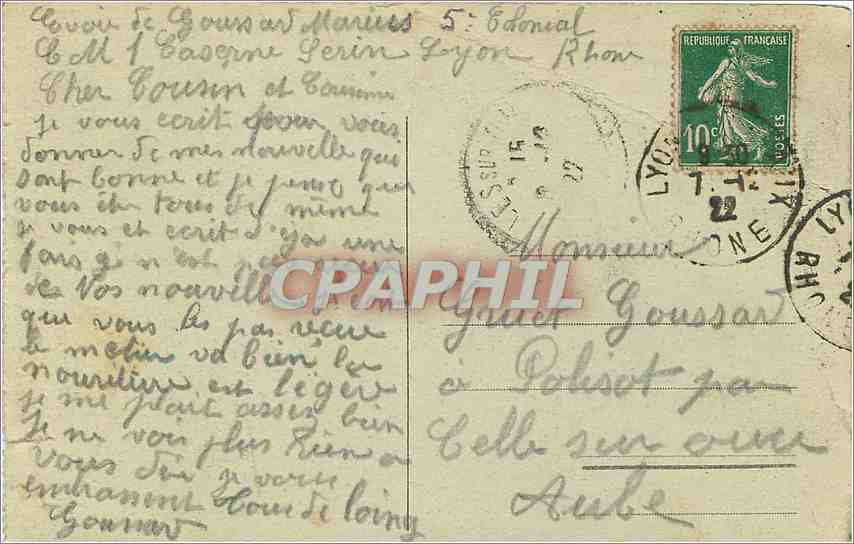 Envoie de Goussard Marius 5e Colonial
C M 1 Caserne Serin Lyon Rhone
Cher Cousin et Cousine
je vous ecrit pour vous
donner de mes nouvelle qui
sont bonne et je pense que
vous ête tous de même
je vous et ecrit d'ja une
fois je n'est pas
de Vos nouvelle
que vous les pas recue
le metier va bien la
nouriture est légère
je me plait asses bien
Je ne vois plus rien a
vous dire je vous
embrassent tous de loing
Goussard
REPUBLIQUE FRANÇAISE
10c POSTES
LYON
7
22
RHONE
LES SUR
15
22
LYO
RHO
CPARHIL
Monsieur
Goussard
à Polisot par
Celle sur ource
Aube